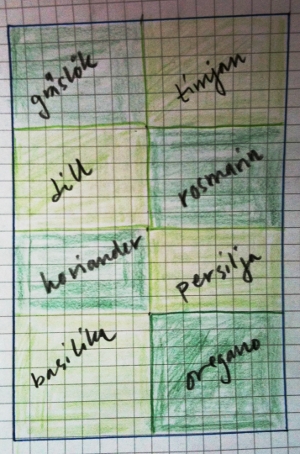 gräslök
timjan
dill
rosmarin
koriander
persilja
basilika
oregano